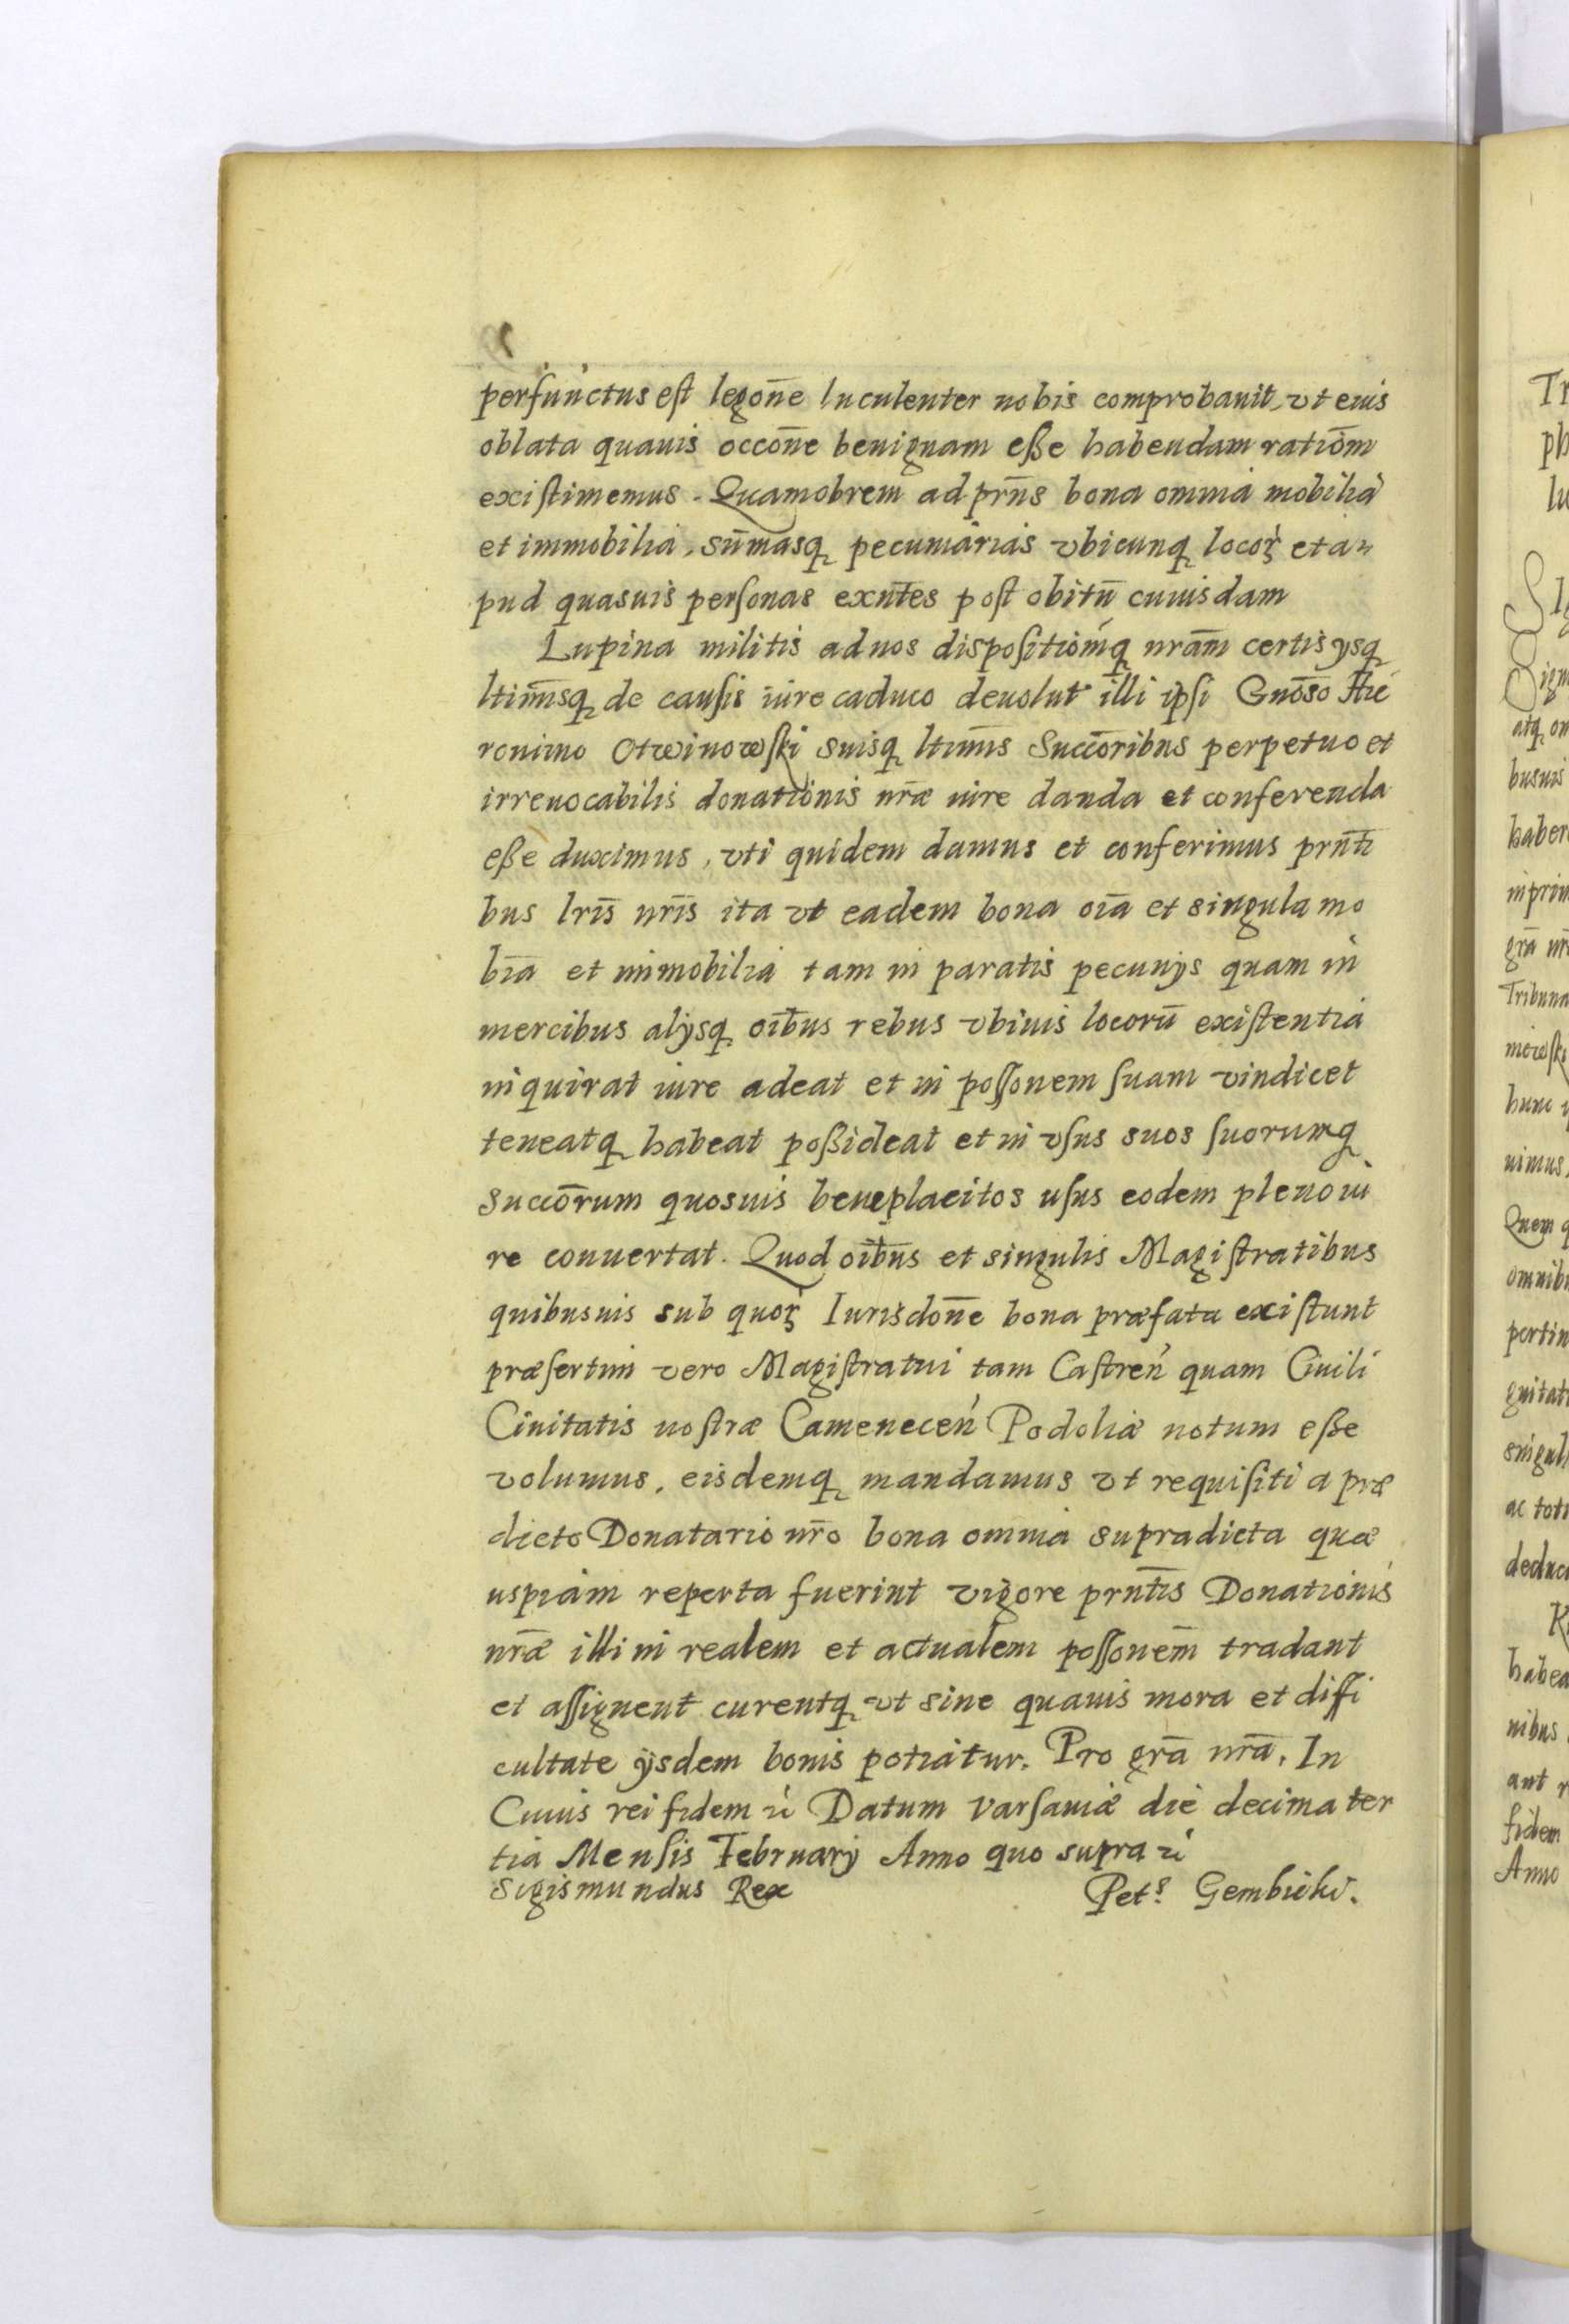 perfunctus est legōne luculenter nobis comprobauit, vt eius
oblata quauis occōne benignam eße habendam ratiōm
existimemus. Quamobrem ad prn̄s bona omnia mobilia
et immobilia, sum̄asq pecuniarias vbicunq locoꝝ et a-
pud quasuis personas exn̄tes post obitū cuiusdam
Lupina militis ad nos dispositiōmq nrām certis ysq
ltimīsq de causis iure caduco deuolut illi ipsi Gnōso Hie
ronimo Otwinowski suisq ltimīs Succōribus perpetuo et
irreuocabilis donationis nrāe iure danda et conferenda
eße duximus, vti quidem damus et conferimus prn̄ti
bus lrīs nrīs ita vt eadem bona oīa et singula mo
bīa et immobilia tam in paratis pecunÿs quam in
mercibus alÿsq oībus rebus vbiuis locorū existentia
inquirat iure adeat et in possonem suam vindicet
teneatq habeat poßideat et in vsus suos suorumq
succōrum quosuis beneplacitos usus eodem pleno iu
re conuertat. Quod oībus et singulis Magistratibus
quibusuis sub quoꝝ Iurisdōne bona præfata existunt
præsertim vero Magistratui tam Castren quam Ciuili
Ciuitatis nostræ Camenecen Podoliæ notum eße
volumus, eisdemq mandamus vt requisiti a præ
dicto Donatario nr̄o bona omnia supradicta quæ
uspiam reperta fuerint vigore prn̄tis Donationis
nrāe illi in realem et actualem possonem̄ tradant
et assignent curentq vt sine quauis mora et diffi
cultate ÿsdem bonis potiatur. Pro grā nrā. In
Cuius rei fidem ꝛc Datum Varsauiæ die decima ter
tia Mensis Februarÿ Anno quo supra ꝛc
Sigismundus Rex Pets Gembicki.